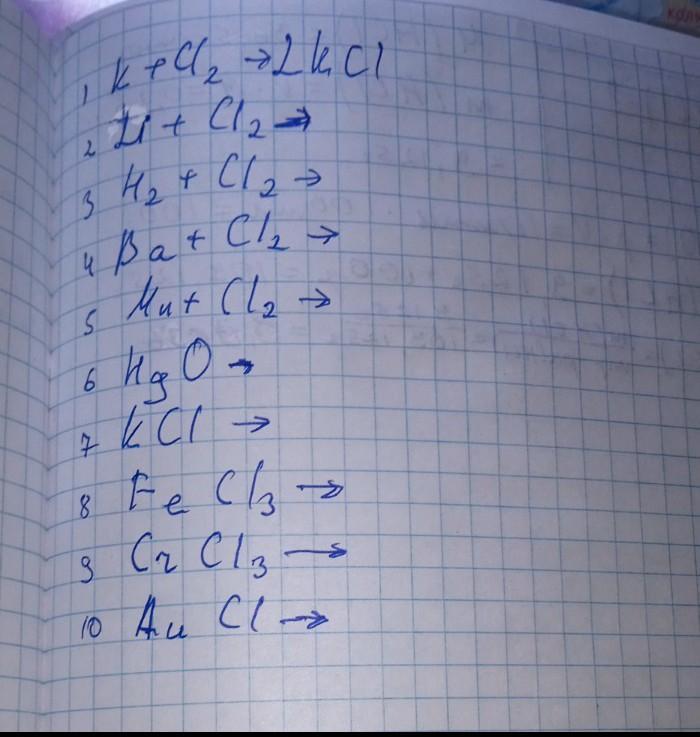 1 K + Cl2 → 2KCl
2 Li + Cl2 →
3 H2 + Cl2 →
4 Ba + Cl2 →
5 Mn + Cl2 →
6 HgO →
7 KCl →
8 FeCl3 →
9 CrCl3 →
10 AuCl →